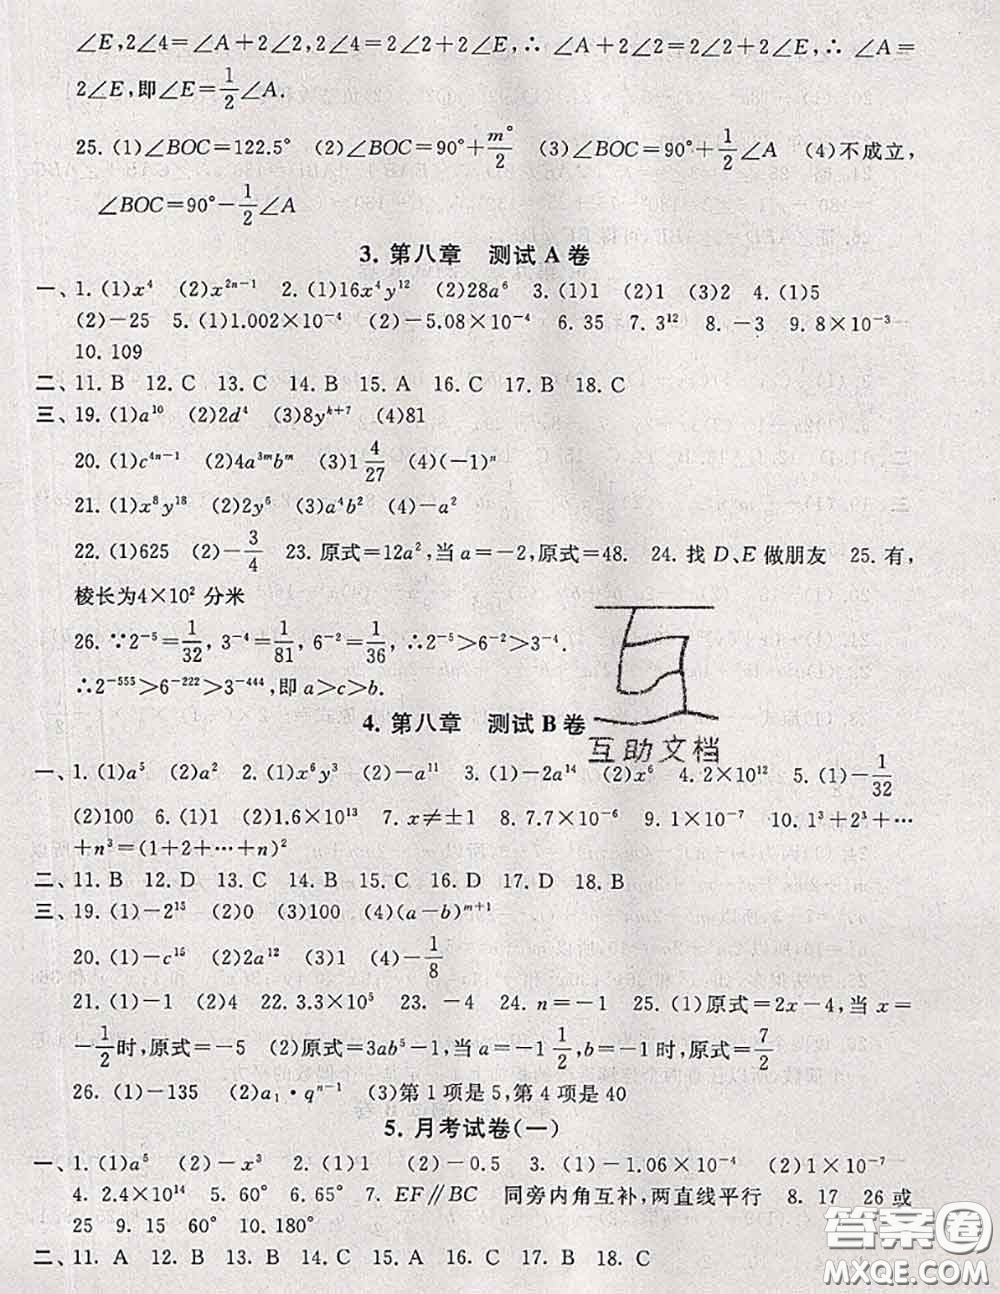 ∠E,2∠4=∠A+2∠2,2∠4=2∠2+2∠E,∴ ∠A+2∠2=2∠2+2∠E,∴ ∠A=
2∠E,即∠E=1/2∠A.
25. (1)∠BOC=122.5° (2)∠BOC=90°+m°/2 (3)∠BOC=90°+1/2∠A (4)不成立,
∠BOC=90°-1/2∠A
3. 第八章 测试 A 卷
一、1. (1)x⁴ (2)x²ⁿ⁻¹ 2. (1)16x⁴y¹² (2)28a⁶ 3. (1)1 (2)1 (3)2 4. (1)5
(2)-25 5. (1)1.002×10⁻⁴ (2)-5.08×10⁻⁴ 6. 35 7. 3¹² 8. -3 9. 8×10⁻³
10. 109
二、11. B 12. C 13. C 14. B 15. A 16. C 17. B 18. C
三、19. (1)a¹⁰ (2)2d⁴ (3)8yᵏ⁺⁷ (4)81
20. (1)c⁴ⁿ⁻¹ (2)4a³ᵐbᵐ (3)1 4/27 (4)(-1)ⁿ
21. (1)x⁸y¹⁸ (2)2y⁶ (3)a⁴b² (4)-a²
22. (1)625 (2)-3/4 23. 原式=12a²,当 a=-2,原式=48. 24. 找 D、E 做朋友 25. 有,
棱长为4×10² 分米
26. ∵2⁻⁵=1/32, 3⁻⁴=1/81, 6⁻²=1/36, ∴2⁻⁵>6⁻²>3⁻⁴.
∴2⁻⁵⁵⁵>6⁻²²²>3⁻⁴⁴⁴,即 a>c>b.
4. 第八章 测试 B 卷
互助文档
一、1. (1)a⁵ (2)a² 2. (1)x⁶y³ (2)-a¹¹ 3. (1)-2a¹⁴ (2)x⁶ 4. 2×10¹² 5. (1)-1/32
(2)100 6. (1)1 (2)1.6×10¹³ 7. x≠±1 8. 7.7×10⁻⁶ 9. 1×10⁻⁷ 10. 1³+2³+…
+n³=(1+2+…+n)²
二、11. B 12. D 13. C 14. C 15. C 16. D 17. D 18. B
三、19. (1)-2¹⁵ (2)0 (3)100 (4)(a-b)ᵐ⁺¹
20. (1)-c¹⁵ (2)2a¹² (3)1 (4)-1/8
21. (1)-1 (2)4 22. 3.3×10⁵ 23. -4 24. n=-1 25. (1)原式=2x-4,当 x=
-1/2时,原式=-5 (2)原式=3ab⁵-1,当 a=-1 1/2,b=-1 时,原式=7/2
26. (1)-135 (2)a₁·qⁿ⁻¹ (3)第 1 项是 5,第 4 项是 40
5. 月考试卷(一)
一、1. (1)a⁵ (2)-x³ 2. (1)1 (2)-0.5 3. (1)-1.06×10⁻⁴ (2)1×10⁻⁷
4. 2.4×10¹⁴ 5. 60° 6. 65° 7. EF∥BC 同旁内角互补,两直线平行 8. 17 26 或
25 9. 15 60° 10. 180°
二、11. A 12. B 13. B 14. C 15. A 16. C 17. B 18. C
答案圈
MXQE.COM